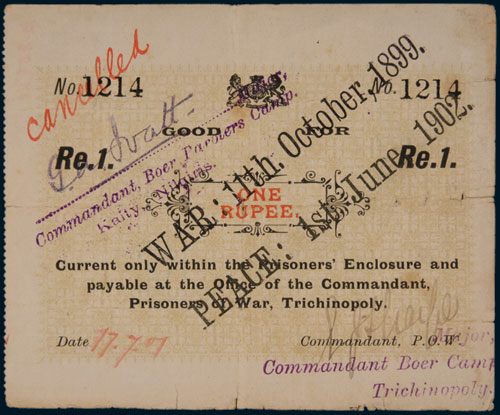 cancelled
No. 1214
No. 1214
GOOD FOR
Re.1.
Re.1.
Major,
Commandant, Boer Prisoners Camp.
Kaity, Nilgiris.
WAR: 11th. October, 1899.
PEACE: 1st. June, 1902.
ONE
RUPEE.
Current only within the Prisoners' Enclosure and
payable at the Office of the Commandant,
Prisoners of War, Trichinopoly.
Date 17.7.01
Commandant, P.O.W.
Major,
Commandant Boer Camp
Trichinopoly.